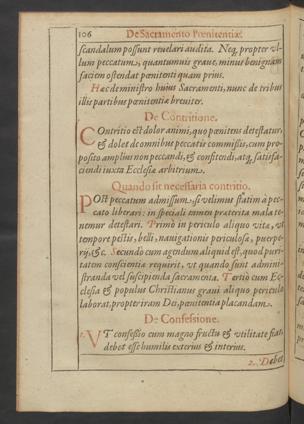 106 De Sacramento Pœnitentiæ.
scandalum possunt reuelari audita. Neq, propter vl-
lum peccatum, quantumuis graue, minus benignam
faciem ostendat pœnitenti quam prius.
Hæc de ministro huius Sacramenti, nunc de tribus
illis partibus pœnitentiæ breuiter.
De Contritione.
Contritio est dolor animi, quo pœnitens detestatur,
& dolet de omnibus peccatis commissis, cum pro-
posito amplius non peccandi, & confitendi, atq, satisfa-
ciendi iuxta Ecclesiæ arbitrium.
Quando sit necessaria contritio.
Post peccatum admissum, si velimus statim à pec-
cato liberari: in speciali tamen præterita mala te-
nemur detestari. Primò in periculo aliquo vitæ, vt
tempore pestis, belli, nauigationis periculosæ, puerpe-
rij, &c. Secundo cum agendum aliquid est, quod puri-
tatem conscientiæ requirit, vt quando sunt admini-
stranda vel suscipienda sacramenta. Tertiò cum Ec-
clesia & populus Christianus graui aliquo periculo
laborat, propter iram Dei, pœnitentia placandam.
De Confessione.
1. VT confessio cum magno fructu & vtilitate fiat,
debet esse humilis exterius & interius.
2. Debet